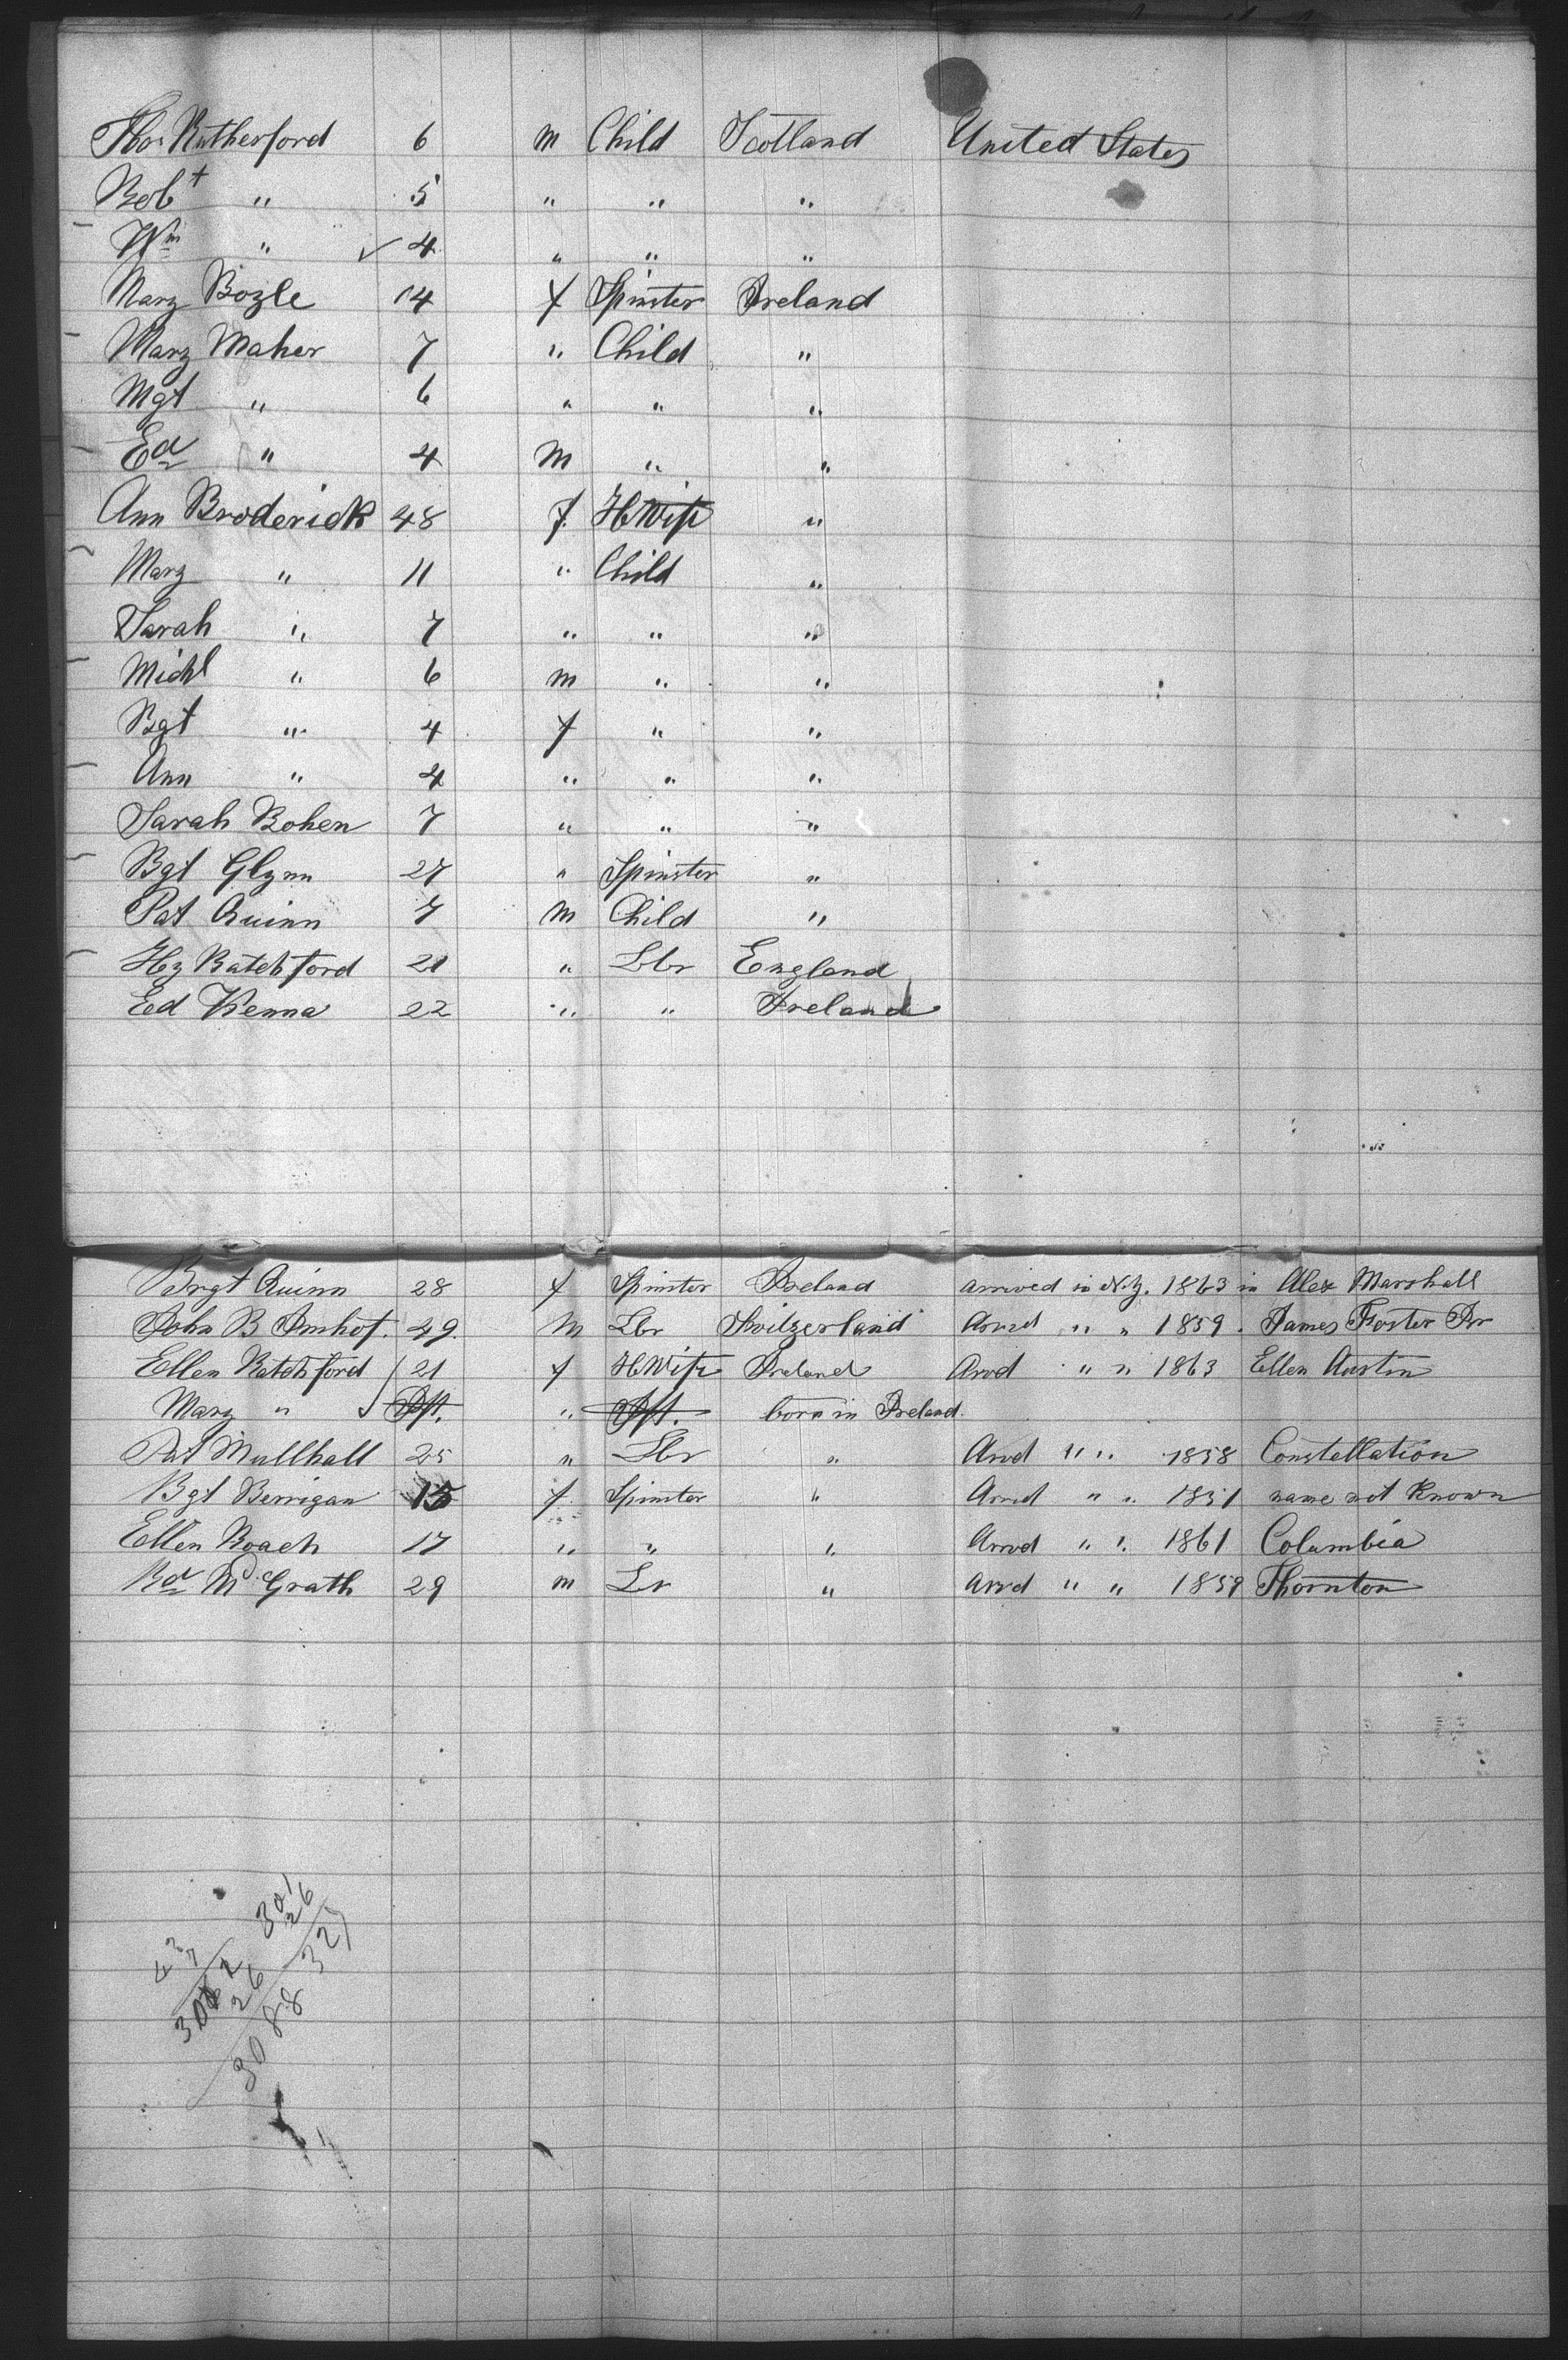 Thos Rutherford 6 m Child Scotland United States
Robt " 5 " " "
Wm " ✓ 4 " " "
Mary Bozle 14 f Spinster Ireland
Mary Maher 7 " Child "
Mgt " 6 " " "
Ed " 4 m " "
Ann Broderick 48 f HWife "
Mary " 11 " Child "
Sarah " 7 " " "
Michl " 6 m " "
Bgt " 4 f " "
Ann " 4 " " "
Sarah Bohen 7 " " "
Bgt Glynn 27 " Spinster "
Pat Quinn 7 m Child "
Hy Ratchford 21 " Lbr England
Ed Kenna 22 " " Ireland
Brgt Quinn 28 f Spinster Ireland arrived in N.Y. 1863 in Alex Marshall
John B Imhof. 49. m Lbr Switzerland Arvd " " 1859. James Foster Jr
Ellen Ratchford 21 f HWife Ireland Arvd " " 1863 Ellen Austin
Mary " ✓ Inft. " Inft. born in Ireland.
Pat Mullhall 25 " Lbr " Arvd " " 1858 Constellation
Bgt Berrigan 15 f Spinster " Arvd " " 1851 name not Known
Ellen Roach 17 " " " Arvd " " 1861 Columbia
Rd McGrath 29 m Lr " Arvd " " 1859 Thornton
301
26
327
26
3088